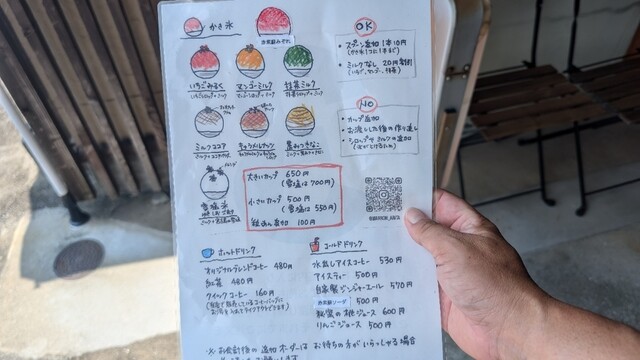 かき氷
いちごみるく
マンゴーミルク
抹茶ミルク
ミルクココア
キャラメルナッツ
黒みつきなこ
雪塩氷
大きいカップ 650円
(雪塩は700円)
小さいカップ 500円
(雪塩は550円)
粒あん追加 100円
OK
・スプーン追加 1本10円
・ミルクなし 20円割引
NO
・カップ追加
・お渡しした後の作り直し
・シロップやミルクの追加
ホットドリンク
オリジナルブレンドコーヒー 480円
紅茶 480円
クイックコーヒー 160円
コールドドリンク
水出しアイスコーヒー 530円
アイスティー 500円
自家製ジンジャーエール 570円
ソーダ 500円
桃ジュース 600円
りんごジュース 500円
※お会計後の追加オーダーは お待ちの方がいらっしゃる場合